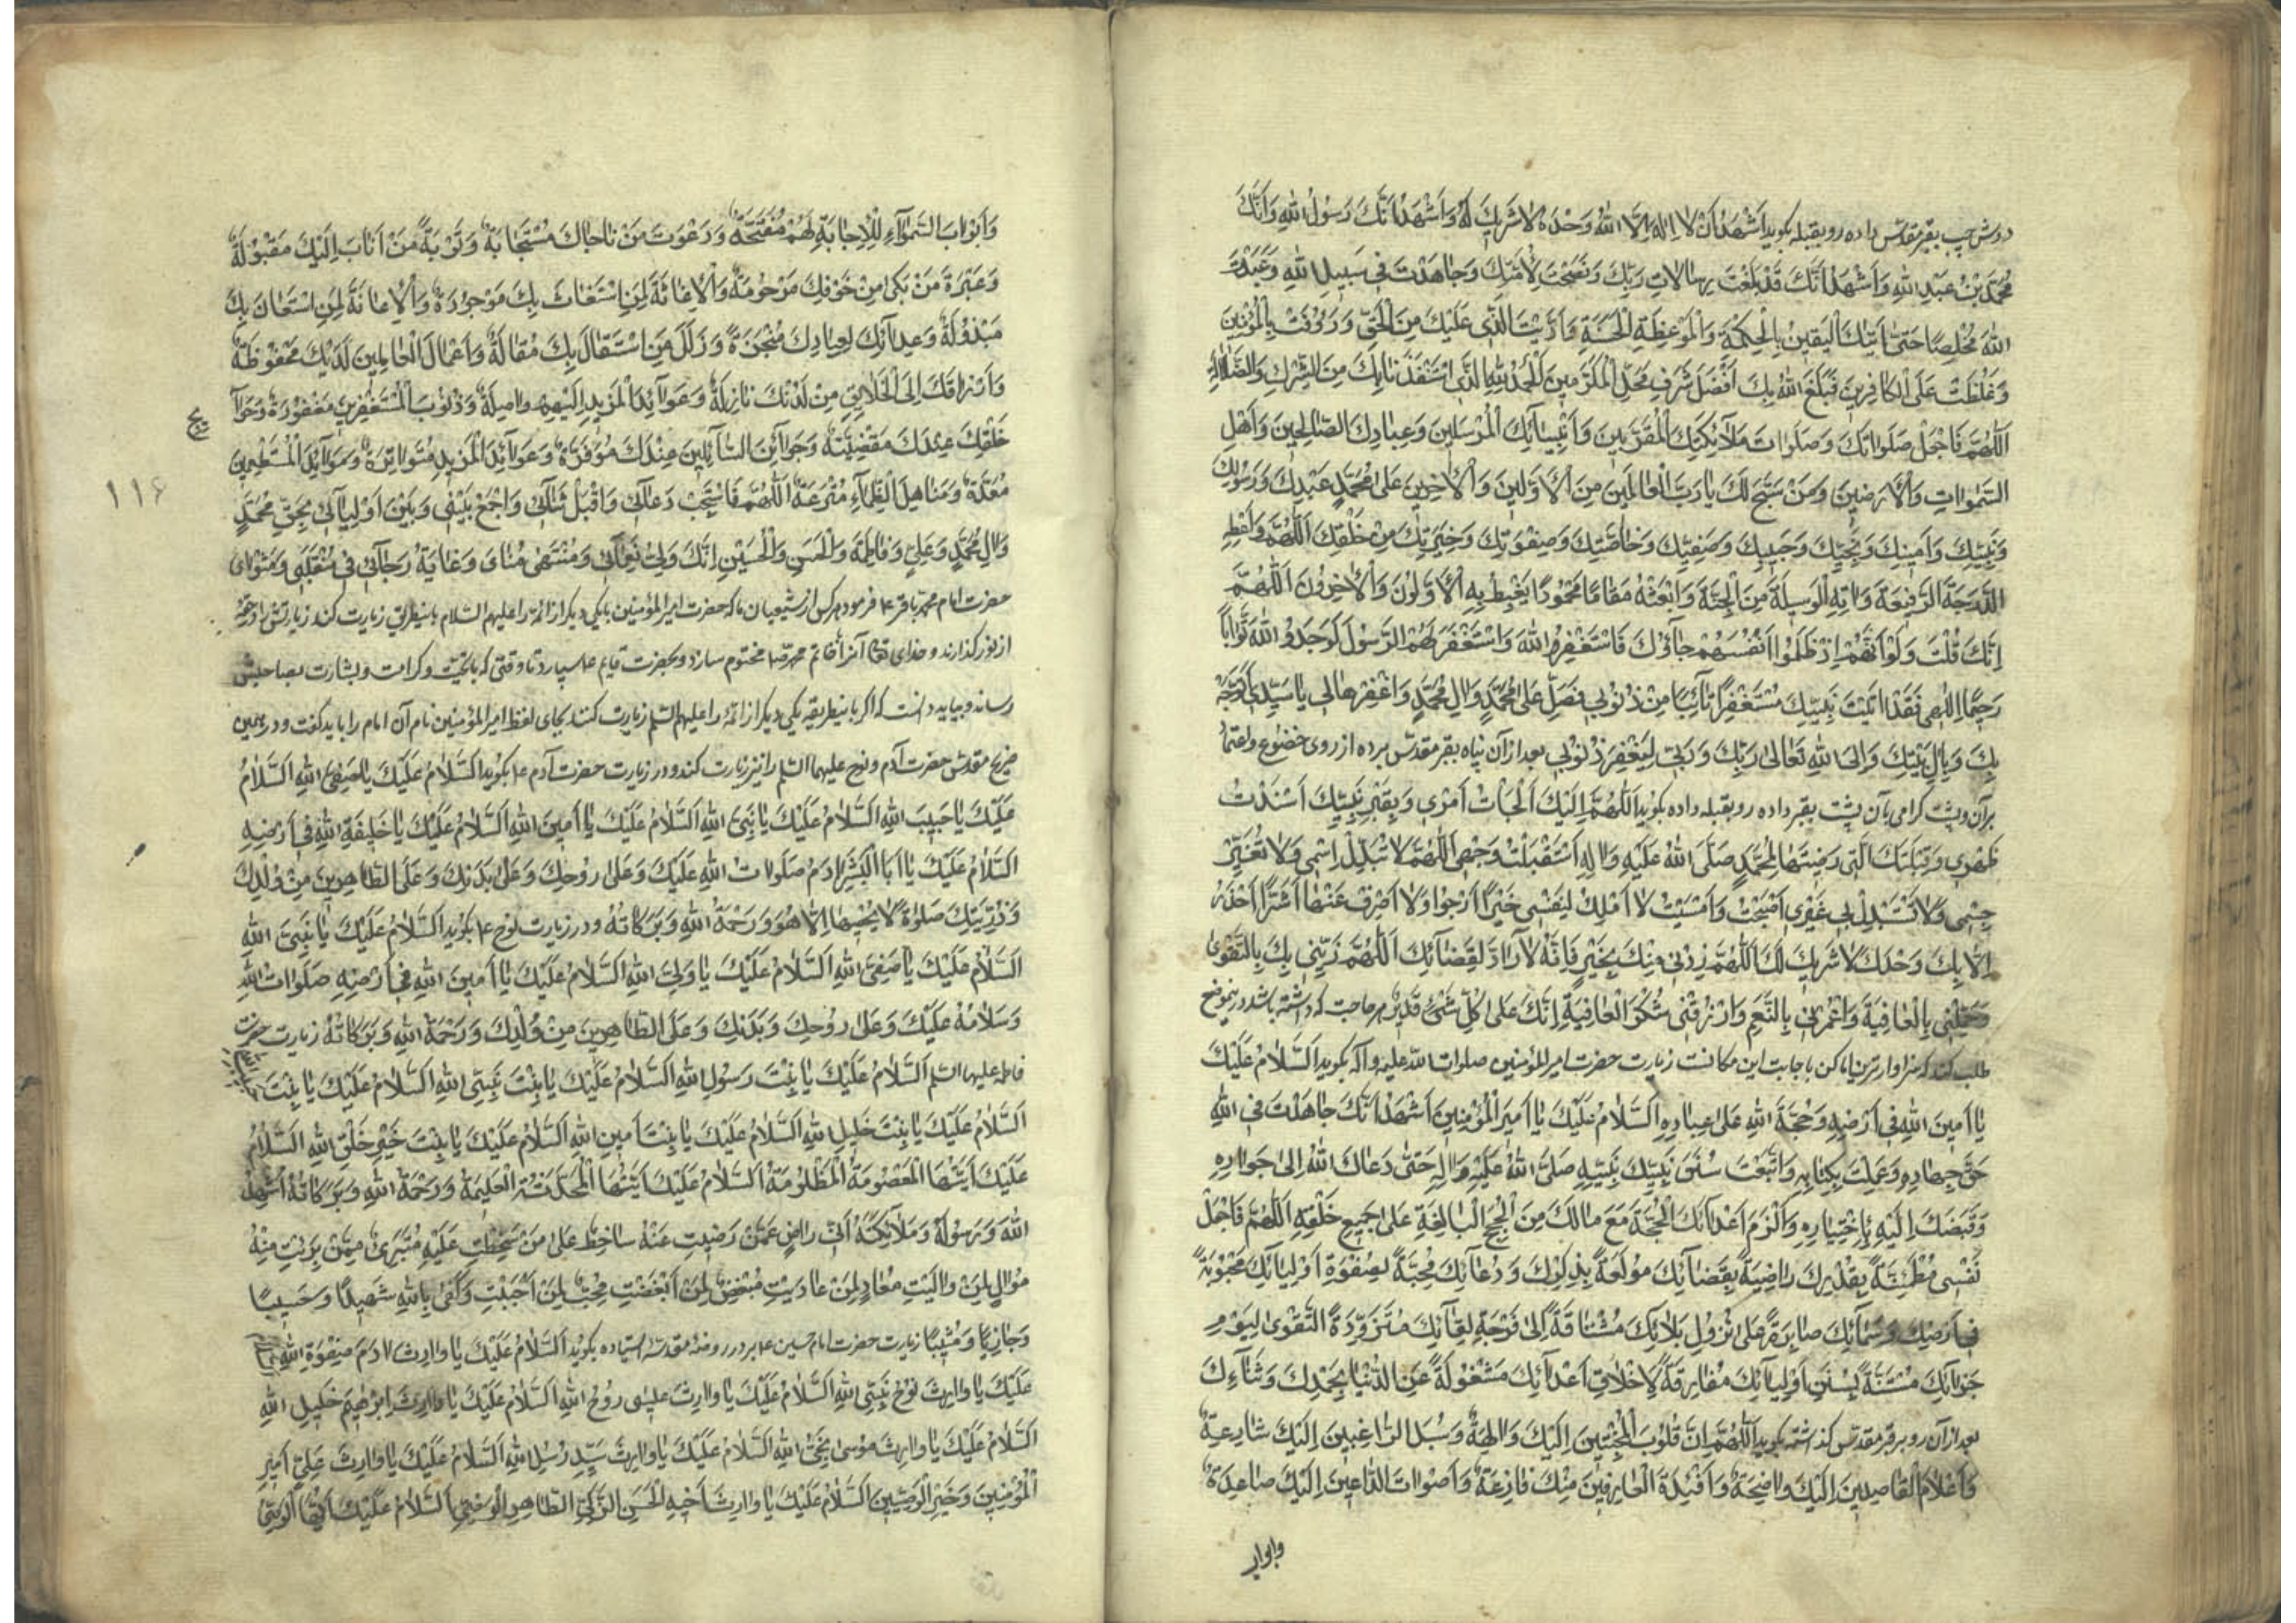 دوش چپ بقبر مقدس داده رو بقبله بکوید اَشْهَدُ اَنْ لا اِلهَ اِلَّا اللهُ وَحْدَهُ لا شَرِيكَ لَهُ وَاَشْهَدُ اَنَّكَ رَسُولُ اللهِ وَاَنَّكَ
مُحَمَّدُ بْنُ عَبْدِ اللهِ وَاَشْهَدُ اَنَّكَ قَدْ بَلَّغْتَ رِسالاتِ رَبِّكَ وَنَصَحْتَ لِاُمَّتِكَ وَجاهَدْتَ فى سَبيلِ اللهِ وَعَبَدْتَ
اللهَ مُخْلِصًا حَتّى اَتيكَ الْيَقينُ بِالْحِكْمَةِ وَالْمَوْعِظَةِ الْحَسَنَةِ وَاَدَّيْتَ الَّذى عَلَيْكَ مِنَ الْحَقِّ وَرَؤُفْتَ بِالْمُؤْمِنينَ
وَغَلُظْتَ عَلَى الْكافِرينَ فَبَلَّغَ اللهُ بِكَ اَفْضَلَ شَرَفِ مَحَلِّ الْمُكَرَّمينَ اَلْحَمْدُ لِلّهِ الَّذى اسْتَنْقَذَنا بِكَ مِنَ الشِّرْكِ وَالضَّلالَةِ
اَللّهُمَّ فَاجْعَلْ صَلَواتِكَ وَصَلَواتِ مَلآئِكَتِكَ الْمُقَرَّبينَ وَاَنْبِيآئِكَ الْمُرْسَلينَ وَعِبادِكَ الصّالِحينَ وَاَهْلِ
السَّمواتِ وَالْاَرَضينَ وَمَنْ سَبَّحَ لَكَ يا رَبَّ الْعالَمينَ مِنَ الْاَوَّلينَ وَالْاخِرينَ عَلى مُحَمَّدٍ عَبْدِكَ وَرَسُولِكَ
وَنَبِيِّكَ وَاَمينِكَ وَنَجِيِّكَ وَحَبيبِكَ وَصَفِيِّكَ وَخاصَّتِكَ وَصِفْوَتِكَ وَخِيَرَتِكَ مِنْ خَلْقِكَ اَللّهُمَّ وَاَعْطِهِ
الدَّرَجَةَ الرَّفيعَةَ وَاتِهِ الْوَسيلَةَ مِنَ الْجَنَّةِ وَابْعَثْهُ مَقامًا مَحْمُودًا يَغْبِطُهُ بِهِ الْاَوَّلُونَ وَالْاخِرُونَ اَللّهُمَّ
اِنَّكَ قُلْتَ وَلَوْ اَنَّهُمْ اِذْ ظَلَمُوا اَنْفُسَهُمْ جآؤُكَ فَاسْتَغْفَرُوا اللهَ وَاسْتَغْفَرَ لَهُمُ الرَّسُولُ لَوَجَدُوا اللهَ تَوّابًا
رَحيمًا اِلهى فَقَدْ اَتَيْتُ نَبِيَّكَ مُسْتَغْفِرًا تآئِبًا مِنْ ذُنُوبى فَصَلِّ عَلى مُحَمَّدٍ وَالِ مُحَمَّدٍ وَاغْفِرْها لى يا سَيِّدى اَتَوَجَّهُ
بِكَ وَبِاَهْلِ بَيْتِكَ وَاِلَى اللهِ تَعالى رَبِّكَ وَرَبّى لِيَغْفِرَ ذُنُوبى بعد ازان پناه بقبر مقدس برده از روی خضوع واعتماد
بران وپشت کرامی بان پشت بقبر داده رو بقبله داده بکوید اَللّهُمَّ اِلَيْكَ اَلْجَأْتُ اَمْرى وَبِقَبْرِ نَبِيِّكَ اَسْنَدْتُ
ظَهْرى وَقِبْلَتَكَ الَّتى رَضيتَها لِمُحَمَّدٍ صَلَّى اللهُ عَلَيْهِ وَالِهِ اسْتَقْبَلْتُ وَجْهى اَللّهُمَّ لا تُبَدِّلْ اِسْمى وَلا تُغَيِّرْ
جِسْمى وَلا تَسْتَبْدِلْ بى غَيْرى اَصْبَحْتُ وَاَمْسَيْتُ لا اَمْلِكُ لِنَفْسى خَيْرًا اَرْجُوا وَلا اَصْرِفُ عَنْها شَرًّا اَحْذَرُ
اِلّا بِكَ وَحْدَكَ لا شَرِيكَ لَكَ اَللّهُمَّ رُدَّنى مِنْكَ بِخَيْرٍ فَاِنَّهُ لا رادَّ لِقَضآئِكَ اَللّهُمَّ زَيِّنّى بِكَ بِالتَّقْوى
وَجَمِّلْنى بِالْعافِيَةِ وَاغْمُرْنى بِالنِّعَمِ وَارْزُقْنى شُكْرَ الْعافِيَةِ اِنَّكَ عَلى كُلِّ شَىْءٍ قَديرٌ هر حاجت که داشته باشد در ینموضع
طلب کند که سزاوارترین اماکن باجابت این مکانست زیارت حضرت امیرالمؤمنین صلوات الله علیه واله بکوید اَلسَّلامُ عَلَيْكَ
يا اَمينَ اللهِ فى اَرْضِهِ وَحُجَّةَ اللهِ عَلى عِبادِهِ اَلسَّلامُ عَلَيْكَ يا اَميرَ الْمُؤْمِنينَ اَشْهَدُ اَنَّكَ جاهَدْتَ فِى اللهِ
حَقَّ جِهادِهِ وَعَمِلْتَ بِكِتابِهِ وَاتَّبَعْتَ سُنَنَ نَبِيِّكَ نَبِيِّهِ صَلَّى اللهُ عَلَيْهِ وَالِهِ حَتّى دَعاكَ اللهُ اِلى جَوارِهِ
وَقَبَضَكَ اِلَيْهِ بِاِخْتِيارِهِ وَاَلْزَمَ اَعْدآئَكَ الْحُجَّةَ مَعَ مالَكَ مِنَ الْحُجَجِ الْبالِغَةِ عَلى جَميعِ خَلْقِهِ اَللّهُمَّ فَاجْعَلْ
نَفْسى مُطْمَئِنَّةً بِقَدَرِكَ راضِيَةً بِقَضآئِكَ مُولَعَةً بِذِكْرِكَ وَدُعآئِكَ مُحِبَّةً لِصِفْوَةِ اَوْلِيآئِكَ مَحْبُوبَةً
فى اَرْضِكَ وَسَمآئِكَ صابِرَةً عَلى نُزُولِ بَلائِكَ مُشْتاقَةً اِلى فَرْحَةِ لِقآئِكَ مُتَزَوِّدَةً التَّقْوى لِيَوْمِ
جَزآئِكَ مُسْتَنَّةً بِسُنَنِ اَوْلِيآئِكَ مُفارِقَةً لِاَخْلاقِ اَعْدآئِكَ مَشْغُولَةً عَنِ الدُّنْيا بِحَمْدِكَ وَثَنآءِكَ
بعد ازان رو بر قبر مقدس کذاشته بکوید اَللّهُمَّ اِنَّ قُلُوبَ الْمُخْبِتينَ اِلَيْكَ والِهَةٌ وَسُبُلَ الرّاغِبينَ اِلَيْكَ شارِعَةٌ
وَاَعْلامَ الْقاصِدينَ اِلَيْكَ واضِحَةٌ وَاَفْئِدَةَ الْعارِفينَ مِنْكَ فازِعَةٌ وَاَصْواتَ الدّاعينَ اِلَيْكَ صاعِدَةٌ
وابواب
وَاَبْوابَ السَّمآءِ لِلْاِجابَةِ لَهُمْ مُفَتَّحَةٌ وَدَعْوَتَ مَنْ ناجاكَ مُسْتَجابَةٌ وَتَوْبَةَ مَنْ اَنابَ اِلَيْكَ مَقْبُولَةٌ
وَعَبْرَةَ مَنْ بَكى مِنْ خَوْفِكَ مَرْحُومَةٌ وَالْاِغاثَةَ لِمَنِ اسْتَغاثَ بِكَ مَوْجُودَةٌ وَالْاِعانَةَ لِمَنِ اسْتَعانَ بِكَ
مَبْذُولَةٌ وَعِداتِكَ لِعِبادِكَ مُنْجَزَةً وَزَلَلَ مَنِ اسْتَقالَ بِكَ مُقالَةٌ وَاَعْمالَ الْعامِلينَ لَدَيْكَ مَحْفُوظَةٌ
وَاَرْزاقَكَ اِلَى الْخَلائِقِ مِنْ لَدُنْكَ نازِلَةٌ وَعَوآئِدَ الْمَزيدِ اِلَيْهِمْ واصِلَةٌ وَذُنُوبَ الْمُسْتَغْفِرينَ مَغْفُورَةٌ وَحَوآئِجَ
خَلْقِكَ عِنْدَكَ مَقْضِيَّةٌ وَجَوآئِزَ السّآئِلينَ عِنْدَكَ مُوَفَّرَةٌ وَعَوآئِدَ الْمَزيدِ مُتَواتِرَةٌ وَمَوآئِدَ الْمُسْتَطْعِمينَ
۱۱۶
مُعَدَّةٌ وَمَناهِلَ الظِّمآءِ مُتْرَعَةٌ اَللّهُمَّ فَاسْتَجِبْ دُعآئى وَاقْبَلْ ثَنآئى وَاجْمَعْ بَيْنى وَبَيْنَ اَوْلِيآئى بِحَقِّ مُحَمَّدٍ
وَالِ مُحَمَّدٍ وَعَلِىٍّ وَفاطِمَةَ وَالْحَسَنِ وَالْحُسَيْنِ اِنَّكَ وَلِىُّ نَعْمآئى وَمُنْتَهى مُناىَ وَغايَةُ رَجآئى فى مُنْقَلَبى وَمَثْواىَ
حضرت امام محمد باقر ع فرموده هر کس از شیعیان ما که حضرت امیرالمؤمنین یا یکی دیکر از ائمه را علیهم السلام باینطریق زیارت کند زیارتش را در
از نور کذارند و خدای تعالی انرا بخاتم محمد ص مختوم سازد و بحضرت قایم ع سپارد تا وقتی که با تحیت وکرامت وبشارت بصاحبش
رساند و بباید دانست که اکر باینطریقه یکی دیکر از ائمه را علیهم السلم زیارت کنند بجای لفظ امیرالمؤمنین نام آن امام را باید کفت ودر همین
ضریح مقدس حضرت آدم ونوح علیهما السلم را نیز زیارت کند ودر زیارت حضرت آدم ع بکوید اَلسَّلامُ عَلَيْكَ يا صَفِىَّ اللهِ اَلسَّلامُ
عَلَيْكَ يا حَبيبَ اللهِ اَلسَّلامُ عَلَيْكَ يا نَبِىَّ اللهِ اَلسَّلامُ عَلَيْكَ يا اَمينَ اللهِ اَلسَّلامُ عَلَيْكَ يا خَليفَةَ اللهِ فى اَرْضِهِ
اَلسَّلامُ عَلَيْكَ يا اَبَا الْبَشَرِ ادَمُ صَلَواتُ اللهِ عَلَيْكَ وَعَلى رُوحِكَ وَعَلى بَدَنِكَ وَعَلَى الطّاهِرينَ مِنْ وُلْدِكَ
وَذُرِّيَّتِكَ صَلوةً لا يُحْصيها اِلّا هُوَ وَرَحْمَةُ اللهِ وَبَرَكاتُهُ ودر زیارت نوح ع بکوید اَلسَّلامُ عَلَيْكَ يا نَبِىَّ اللهِ
اَلسَّلامُ عَلَيْكَ يا صَفِىَّ اللهِ اَلسَّلامُ عَلَيْكَ يا وَلِىَّ اللهِ اَلسَّلامُ عَلَيْكَ يا اَمينَ اللهِ فى اَرْضِهِ صَلَواتُ اللهِ
وَسَلامُهُ عَلَيْكَ وَعَلى رُوحِكَ وَبَدَنِكَ وَعَلَى الطّاهِرينَ مِنْ وُلْدِكَ وَرَحْمَةُ اللهِ وَبَرَكاتُهُ زیارت حضرت
فاطمه علیها السلم اَلسَّلامُ عَلَيْكِ يا بِنْتَ رَسُولِ اللهِ اَلسَّلامُ عَلَيْكِ يا بِنْتَ نَبِىِّ اللهِ اَلسَّلامُ عَلَيْكِ يا بِنْتَ
اَلسَّلامُ عَلَيْكِ يا بِنْتَ خَليلِ اللهِ اَلسَّلامُ عَلَيْكِ يا بِنْتَ اَمينِ اللهِ اَلسَّلامُ عَلَيْكِ يا بِنْتَ خَيْرِ خَلْقِ اللهِ اَلسَّلامُ
عَلَيْكِ اَيَّتُهَا الْمَعْصُومَةُ الْمَظْلُومَةُ اَلسَّلامُ عَلَيْكِ اَيَّتُهَا الْمُحَدَّثَةُ الْعَليمَةُ وَرَحْمَةُ اللهِ وَبَرَكاتُهُ اُشْهِدُ
اللهَ وَرَسُولَهُ وَمَلائِكَتَهُ اَنّى راضٍ عَمَّنْ رَضيتِ عَنْهُ ساخِطٌ عَلى مَنْ سَخِطْتِ عَلَيْهِ مُتَبَرِّئٌ مِمَّنْ بَرِئْتِ مِنْهُ
مُوالٍ لِمَنْ والَيْتِ مُعادٍ لِمَنْ عادَيْتِ مُبْغِضٌ لِمَنْ اَبْغَضْتِ مُحِبٌّ لِمَنْ اَحْبَبْتِ وَكَفى بِاللهِ شَهيدًا وَحَسيبًا
وَجازِيًا وَمُثيبًا زیارت حضرت امام حسین ع بر در روضه مقدسه استاده بکوید اَلسَّلامُ عَلَيْكَ يا وارِثَ ادَمَ صِفْوَةِ اللهِ
عَلَيْكَ يا وارِثَ نُوحٍ نَبِىِّ اللهِ اَلسَّلامُ عَلَيْكَ يا وارِثَ عيسى رُوحِ اللهِ اَلسَّلامُ عَلَيْكَ يا وارِثَ اِبْرهيمَ خَليلِ اللهِ
اَلسَّلامُ عَلَيْكَ يا وارِثَ مُوسى نَجِىِّ اللهِ اَلسَّلامُ عَلَيْكَ يا وارِثَ سَيِّدِ رُسُلِ اللهِ اَلسَّلامُ عَلَيْكَ يا وارِثَ عَلِىٍّ اَميرِ
الْمُؤْمِنينَ وَخَيْرِ الْوَصِيّينَ اَلسَّلامُ عَلَيْكَ يا وارِثَ اَخيهِ الْحَسَنِ الزَّكِىِّ الطّاهِرِ الْرَّضِىِّ اَلسَّلامُ عَلَيْكَ اَيُّهَا الْوَصِىُّ